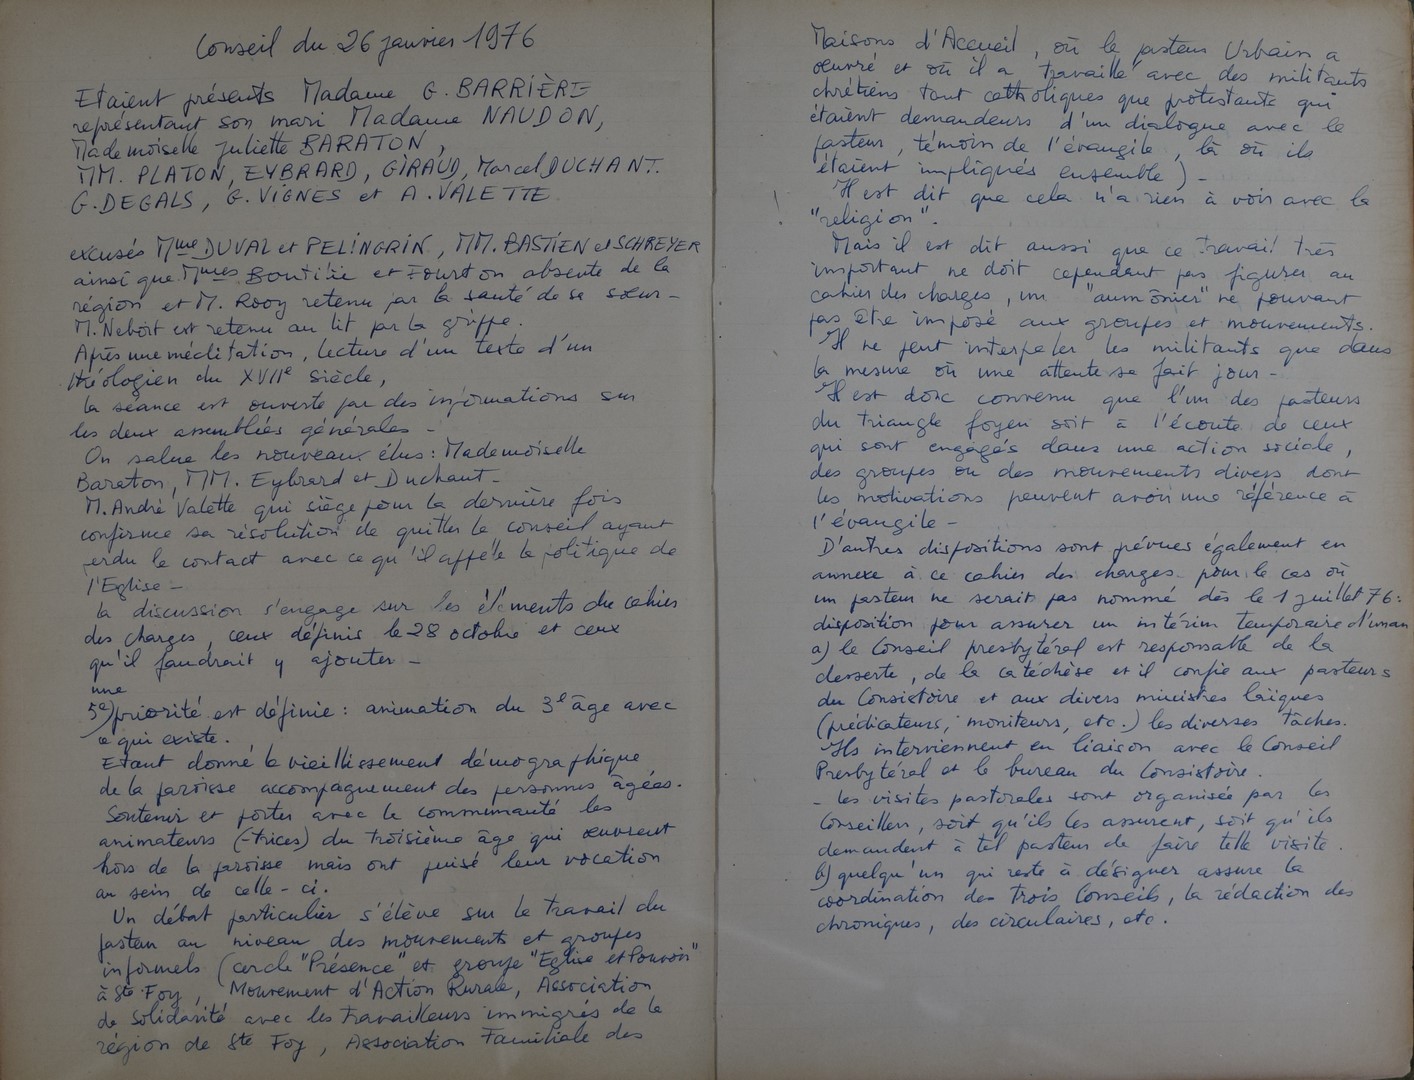 Conseil du 26 janvier 1976
Etaient présents Madame G. BARRIÈRE
représentant son mari Madame NAUDON,
Mademoiselle Juliette BARATON,
MM. PLATON, EYBRARD, GIRAUD, Marcel DUCHANT.
G. DEGALS, G. VIGNES et A. VALETTE
excusés Mme DUVAL et PELINGRIN, MM. BASTIEN et SCHREYER
ainsi que Mmes et Fourton absente de la
région et M. Rooy retenu par la santé de sa sœur -
M. Neboit est retenu au lit par la grippe.
Après une méditation, lecture d'un texte d'un
théologien du XVIIe siècle,
la séance est ouverte par des informations sur
les deux assemblées générales -
On salue les nouveaux élus : Mademoiselle
Baraton, MM. Eybrard et Duchant -
M. André Valette qui siège pour la dernière fois
confirme sa résolution de quitter le conseil ayant
perdu le contact avec ce qu'il appelle la politique de
l'Eglise -
la discussion s'engage sur les éléments du cahier
des charges, ceux définis le 28 octobre et ceux
qu'il faudrait y ajouter -
une
5e) priorité est définie : animation du 3e âge avec
ce qui existe.
Etant donné le vieillissement démographique
de la paroisse accompagnement des personnes âgées.
Soutenir et porter avec la communauté les
animateurs (-trices) du troisième âge qui œuvrent
hors de la paroisse mais ont puisé leur vocation
au sein de celle-ci.
Un débat particulier s'élève sur le travail du
pasteur au niveau des mouvements et groupes
informels (cercle "Présence" et groupe "Eglise et Pouvoir"
à Ste Foy, Mouvement d'Action Rurale, Association
de Solidarité avec les travailleurs immigrés de la
région de Ste Foy, Association Familiale des
Maisons d'Accueil, où le pasteur Urbain a
œuvré et où il a "travaillé" avec des militants
chrétiens tant catholiques que protestants qui
étaient demandeurs d'un dialogue avec le
pasteur, témoin de l'évangile, là où ils
étaient impliqués ensemble) -
Il est dit que cela n'a rien à voir avec la
"religion".
Mais il est dit aussi que ce travail très
important ne doit cependant pas figurer au
cahier des charges, un "aumônier" ne pouvant
pas être imposé aux groupes et mouvements.
Il ne peut interpeler les militants que dans
la mesure où une attente se fait jour -
Il est donc convenu que l'un des pasteurs
du triangle foyen soit à l'écoute de ceux
qui sont engagés dans une action sociale,
des groupes ou des mouvements divers dont
les motivations peuvent avoir une référence à
l'évangile -
D'autres dispositions sont prévues également en
annexe à ce cahier des charges pour le cas où
un pasteur ne serait pas nommé dès le 1 juillet 76 :
disposition pour assurer un intérim temporaire d'un an
a) le Conseil presbytéral est responsable de la
desserte, de la catéchèse et il confie aux pasteurs
du Consistoire et aux divers ministres laïques
(prédicateurs, moniteurs, etc.) les diverses tâches.
Ils interviennent en liaison avec le Conseil
Presbytéral et le bureau du Consistoire.
- les visites pastorales sont organisée par les
Conseillers, soit qu'ils les assurent, soit qu'ils
demandent à tel pasteur de faire telle visite.
b) quelqu'un qui reste à désigner assure la
coordination des trois Conseils, la rédaction des
chroniques, des circulaires, etc.